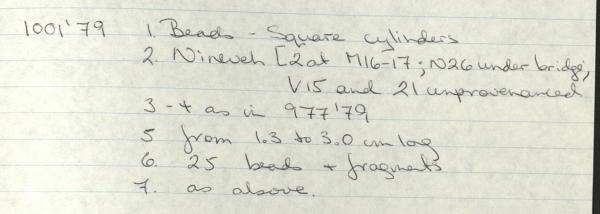 1001'79 1. Beads - Square cylinders
2. Nineveh [2 at M16-17; N26 under bridge;
V15 and 21 unprovenanced
3 - 4 as in 977'79
5 from 1.3 to 3.0 cm long
6. 25 beads + fragments
7. as above.